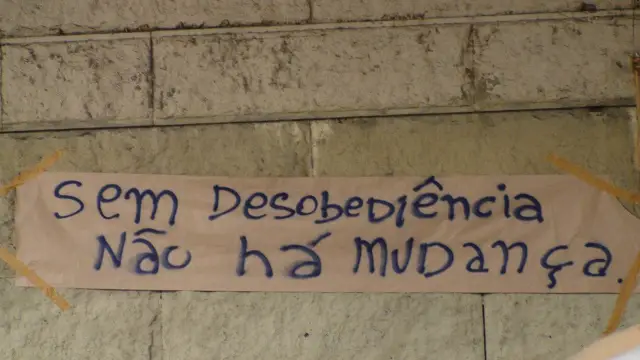 Sem Desobediência
Não há mudança.